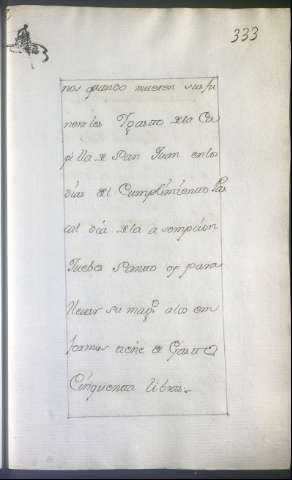 333
nos quando mueren sus fu
nerales Y gasto de la Ca
pilla de San Juan en los
dias del Cumplimiento Pas
al dia de la a
Juebes Santo y para
llevar su mag.d a los en
fermos tiene de Gasto
Cinquenta libras